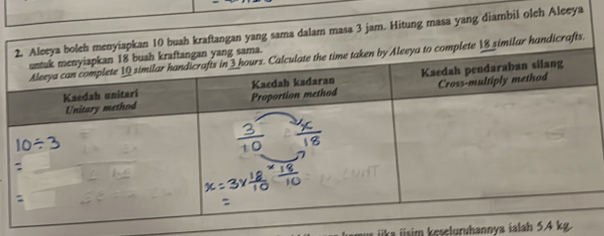 2. Aleeya boleh menyiapkan 10 buah kraftangan yang sama dalam masa 3 jam. Hitung masa yang diambil oleh Aleeya
untuk menyiapkan 18 buah kraftangan yang sama.
Aleeya can complete 10 similar handicrafts in 3 hours. Calculate the time taken by Aleeya to complete 18 similar handicrafts.
Kaedah unitari
Unitary method
Kaedah kadaran
Proportion method
Kaedah pendaraban silang
Cross-multiply method
10 ÷ 3
=
=
3/10 x/18
× 18/10
x = 3 × 18/10
=
jika jisim keseluruhannya ialah 5.4 kg.